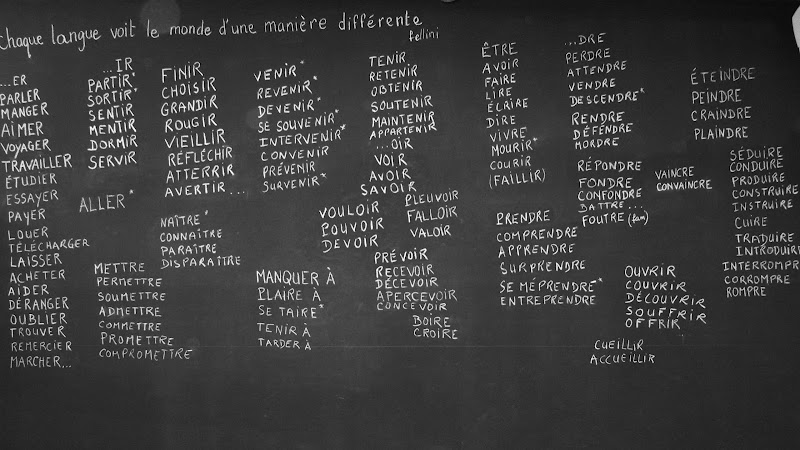 Chaque langue voit le monde d'une manière différente
fellini
...ER
PARLER
MANGER
AIMER
VOYAGER
TRAVAILLER
ÉTUDIER
ESSAYER
PAYER
LOUER
TÉLÉCHARGER
LAISSER
ACHETER
AIDER
DÉRANGER
OUBLIER
TROUVER
REMERCIER
MARCHER...
...IR
PARTIR*
SORTIR*
SENTIR
MENTIR
DORMIR
SERVIR
ALLER*
METTRE
PERMETTRE
SOUMETTRE
ADMETTRE
COMMETTRE
PROMETTRE
COMPROMETTRE
FINIR
CHOISIR
GRANDIR
ROUGIR
VIEILLIR
RÉFLÉCHIR
ATTERRIR
AVERTIR...
NAÎTRE*
CONNAÎTRE
PARAÎTRE
DISPARAÎTRE
VENIR*
REVENIR*
DEVENIR*
SE SOUVENIR*
INTERVENIR*
CONVENIR
PRÉVENIR
SURVENIR*
MANQUER À
PLAIRE À
SE TAIRE*
TENIR À
TARDER À
TENIR
RETENIR
OBTENIR
SOUTENIR
MAINTENIR
APPARTENIR
...OIR
VOIR
AVOIR
SAVOIR
VOULOIR
POUVOIR
DEVOIR
PLEUVOIR
FALLOIR
VALOIR
PRÉVOIR
RECEVOIR
DÉCEVOIR
APERCEVOIR
CONCEVOIR
BOIRE
CROIRE
ÊTRE
AVOIR
FAIRE
LIRE
ÉCRIRE
DIRE
VIVRE
MOURIR*
COURIR
(FAILLIR)
PRENDRE
COMPRENDRE
APPRENDRE
SURPRENDRE
SE MÉPRENDRE*
ENTREPRENDRE
...DRE
PERDRE
ATTENDRE
VENDRE
DESCENDRE*
RENDRE
DÉFENDRE
MORDRE
RÉPONDRE
FONDRE
CONFONDRE
BATTRE...
FOUTRE (fam)
VAINCRE
CONVAINCRE
OUVRIR
COUVRIR
DÉCOUVRIR
SOUFFRIR
OFFRIR
CUEILLIR
ACCUEILLIR
ÉTEINDRE
PEINDRE
CRAINDRE
PLAINDRE
SÉDUIRE
CONDUIRE
PRODUIRE
CONSTRUIRE
INSTRUIRE
CUIRE
TRADUIRE
INTRODUIRE
INTERROMPRE
CORROMPRE
ROMPRE